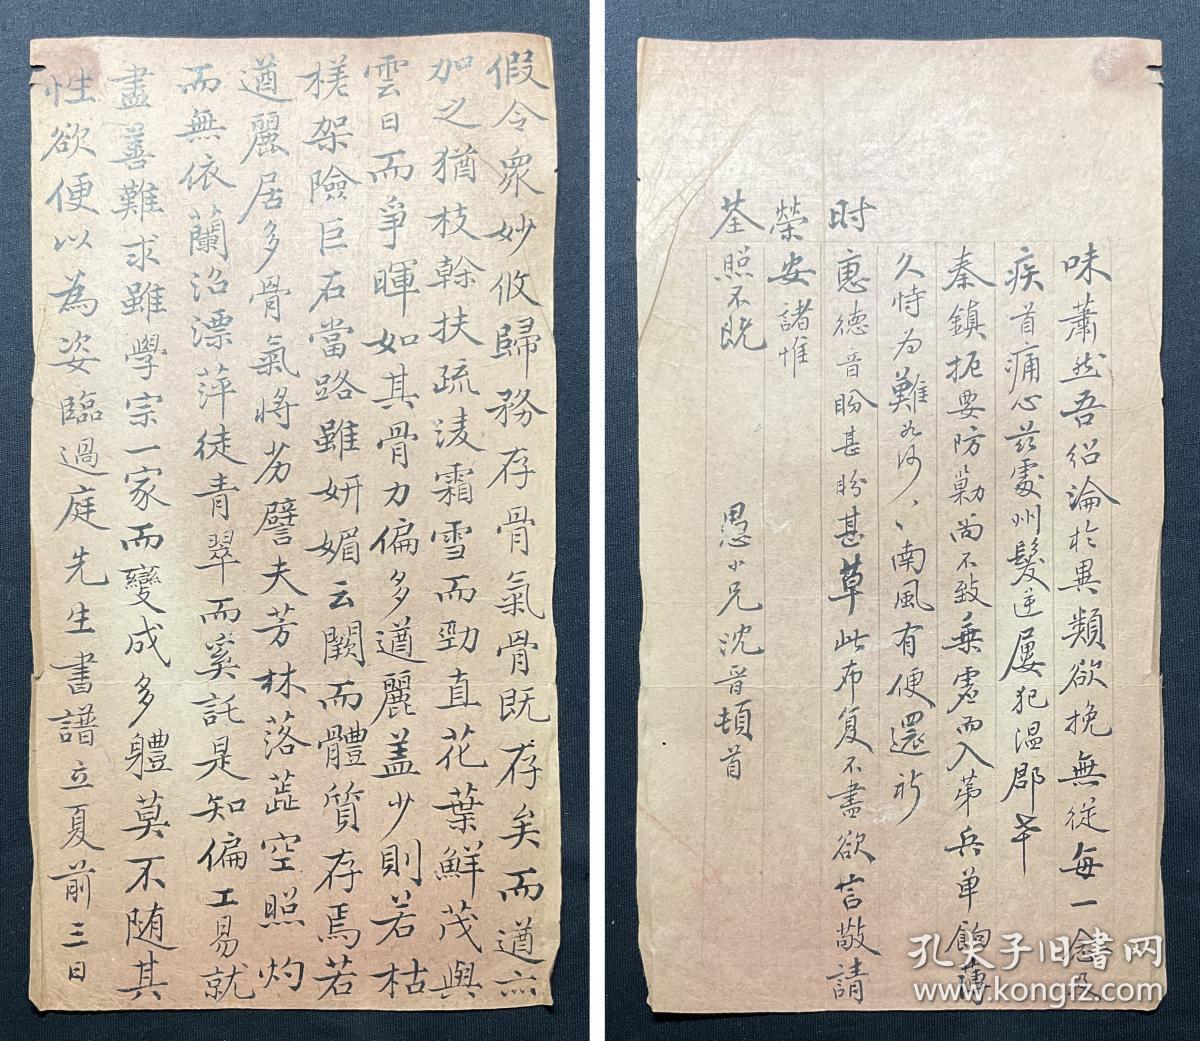 假令衆妙攸歸務存骨氣骨既存矣而遒亦
加之猶枝幹扶疏淩霜雪而勁直花葉鮮茂與
雲日而爭暉如其骨力偏多遒麗盖少則若枯
槎架險巨石當路雖妍媚云闕而體質存焉若
遒麗居多骨氣將劣譬夫芳林落蕋空照灼
而無依蘭沼漂萍徒青翠而奚託是知偏工易就
盡善難求雖學宗一家而變成多軆莫不随其
性欲便以為姿臨過庭先生書譜立夏前三日
味蕭然吾紹淪於異類欲挽無從每一念及
疾首痛心兹處州髮逆屢犯温郡幸
秦鎮扼要防勦尚不致乗虚而入苐兵单餉薄
久恃为難如何、、南風有便還祈
时
惠德音盼甚盼甚草此布复不盡欲言敬請
榮安諸惟
荃照不既
愚小兄沈晋頓首
孔夫子旧書网
www.kongfz.com